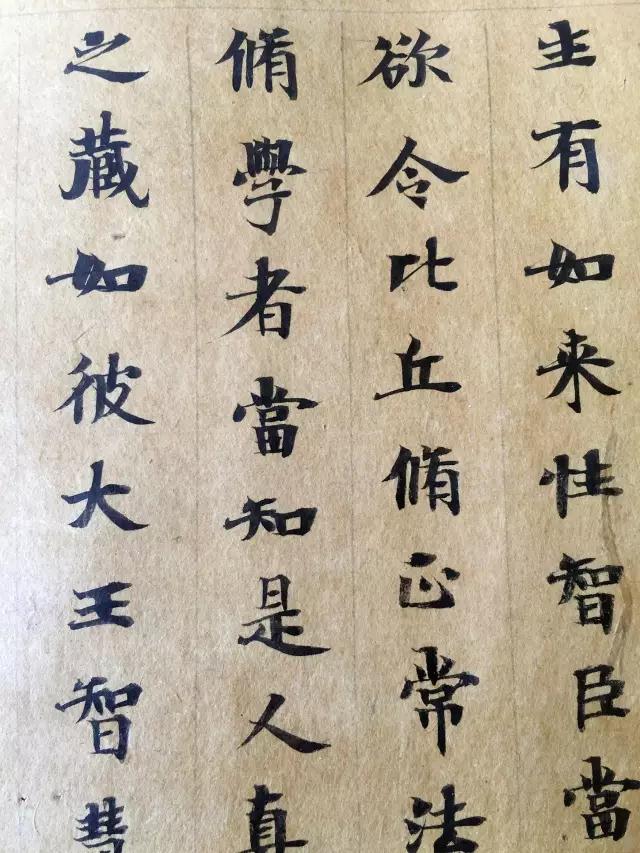 生有如来性智臣當
欲令比丘脩正常法
脩學者當知是人真
之藏如彼大王智慧